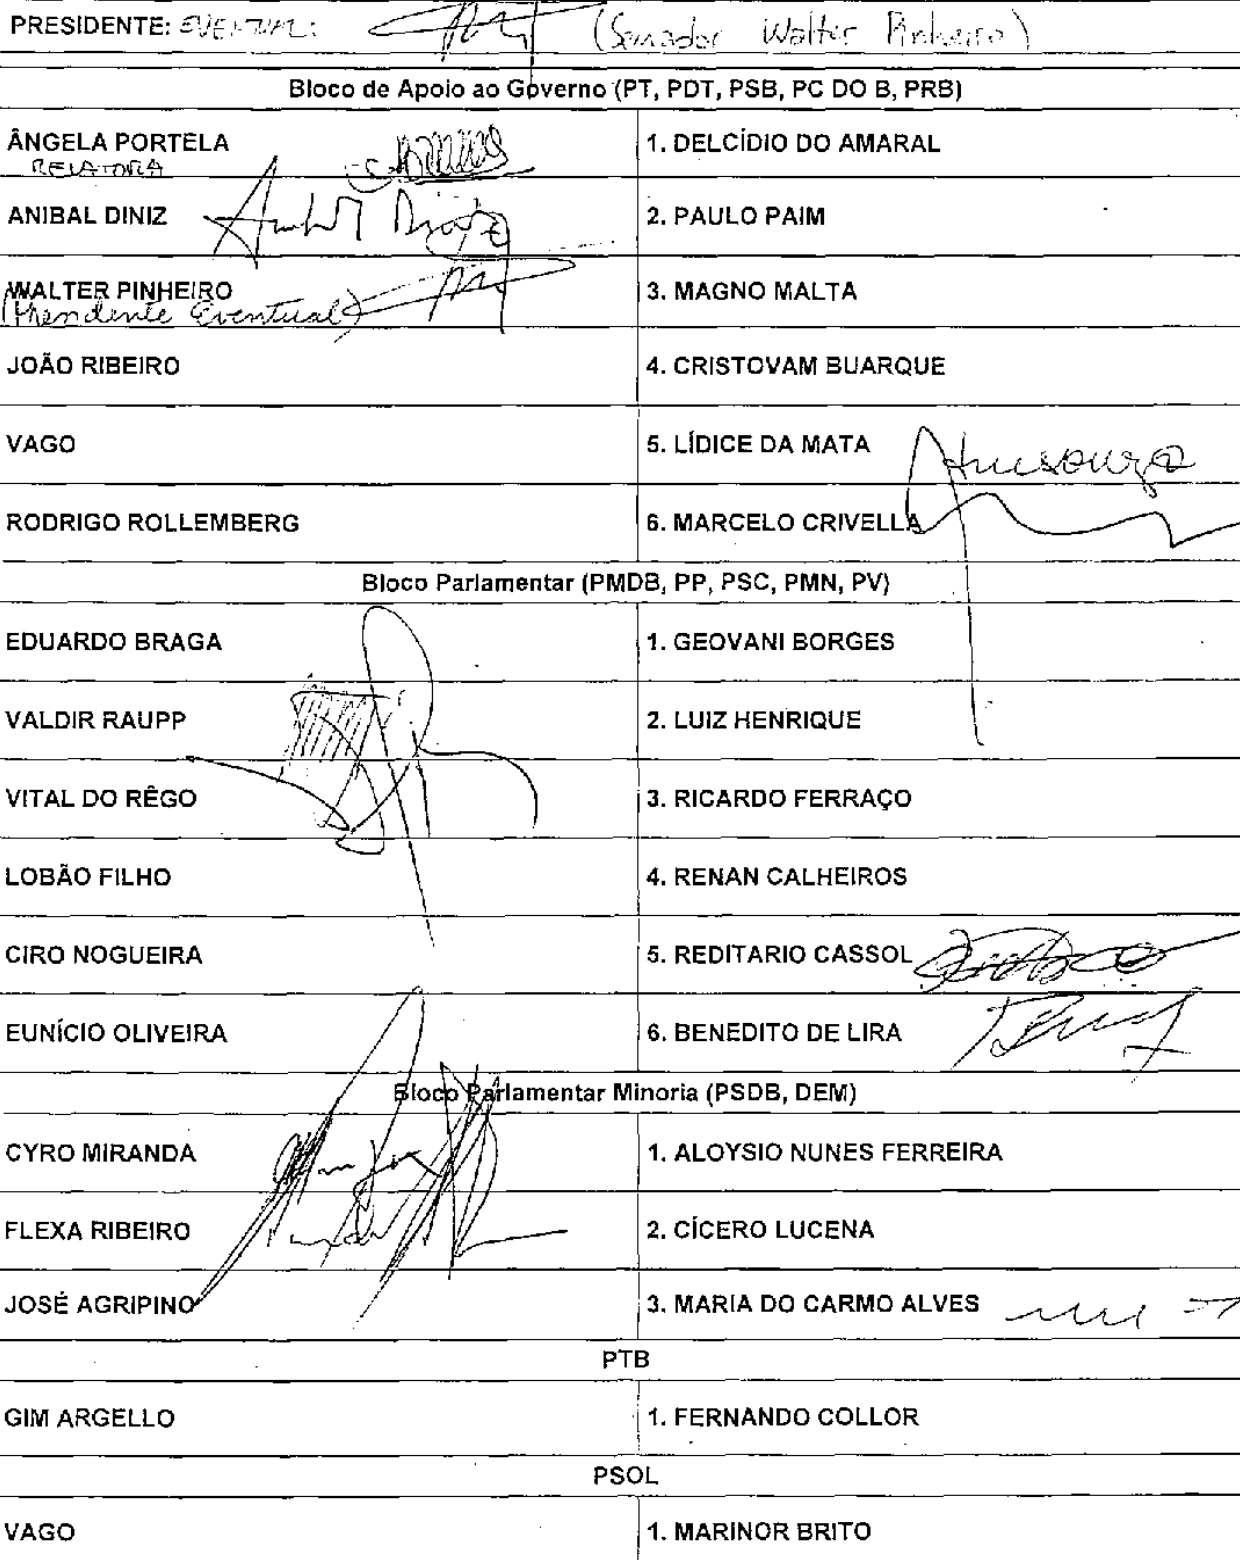 PRESIDENTE: EVENTUAL: (Senador Walter Pinheiro)
Bloco de Apoio ao Governo (PT, PDT, PSB, PC DO B, PRB)
ÂNGELA PORTELA 1. DELCÍDIO DO AMARAL
RELATORA
ANIBAL DINIZ Anibal Diniz 2. PAULO PAIM
WALTER PINHEIRO 3. MAGNO MALTA
(Presidente Eventual)
JOÃO RIBEIRO 4. CRISTOVAM BUARQUE
VAGO 5. LÍDICE DA MATA
RODRIGO ROLLEMBERG 6. MARCELO CRIVELLA
Bloco Parlamentar (PMDB, PP, PSC, PMN, PV)
EDUARDO BRAGA 1. GEOVANI BORGES
VALDIR RAUPP 2. LUIZ HENRIQUE
VITAL DO RÊGO 3. RICARDO FERRAÇO
LOBÃO FILHO 4. RENAN CALHEIROS
CIRO NOGUEIRA 5. REDITARIO CASSOL
EUNÍCIO OLIVEIRA 6. BENEDITO DE LIRA
Bloco Parlamentar Minoria (PSDB, DEM)
CYRO MIRANDA 1. ALOYSIO NUNES FERREIRA
FLEXA RIBEIRO 2. CÍCERO LUCENA
JOSÉ AGRIPINO 3. MARIA DO CARMO ALVES
PTB
GIM ARGELLO 1. FERNANDO COLLOR
PSOL
VAGO 1. MARINOR BRITO